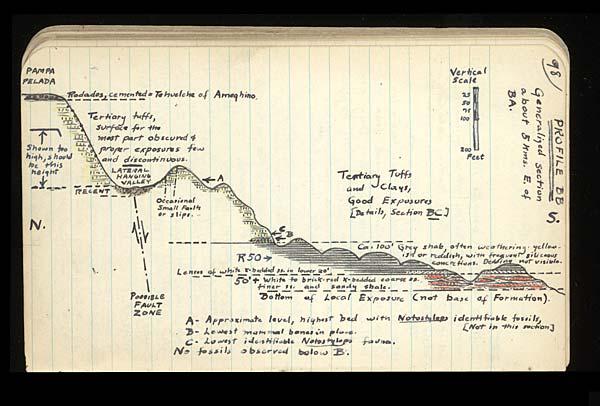 98
PROFILE BB
Generalized section
about 5 kms. E. of
BA.
S.
PAMPA
PELADA
Rodados, cemented = Tehuelche of Ameghino.
Vertical
Scale
25
50
75
100
200
Feet
Tertiary tuffs,
surface for the
most part obscured &
proper exposures few
and discontinuous.
Shown too
high, should
be this
height
LATERAL
HANGING
VALLEY
RECENT
N.
Occasional
Small Faults
or slips.
A
Tertiary Tuffs
and Clays,
Good Exposures
[Details, Section BC]
C
B
R50
Ca. 100' Grey shab, often weathering yellow-
ish or reddish, with frequent siliceous
concretions. Bedding not visible.
Lenses of white x-bedded ss. in lower 20'
50' + White to brick-red x-bedded coarse ss.
finer ss. and sandy shale.
Bottom of Local Exposure (not base of Formation).
POSSIBLE
FAULT
ZONE
A- Approximate level, highest bed with Notostylops identifiable fossils,
[Not in this section]
B- Lowest mammal bones in place.
C- Lowest identifiable Notostylops fauna.
No fossils observed below B.